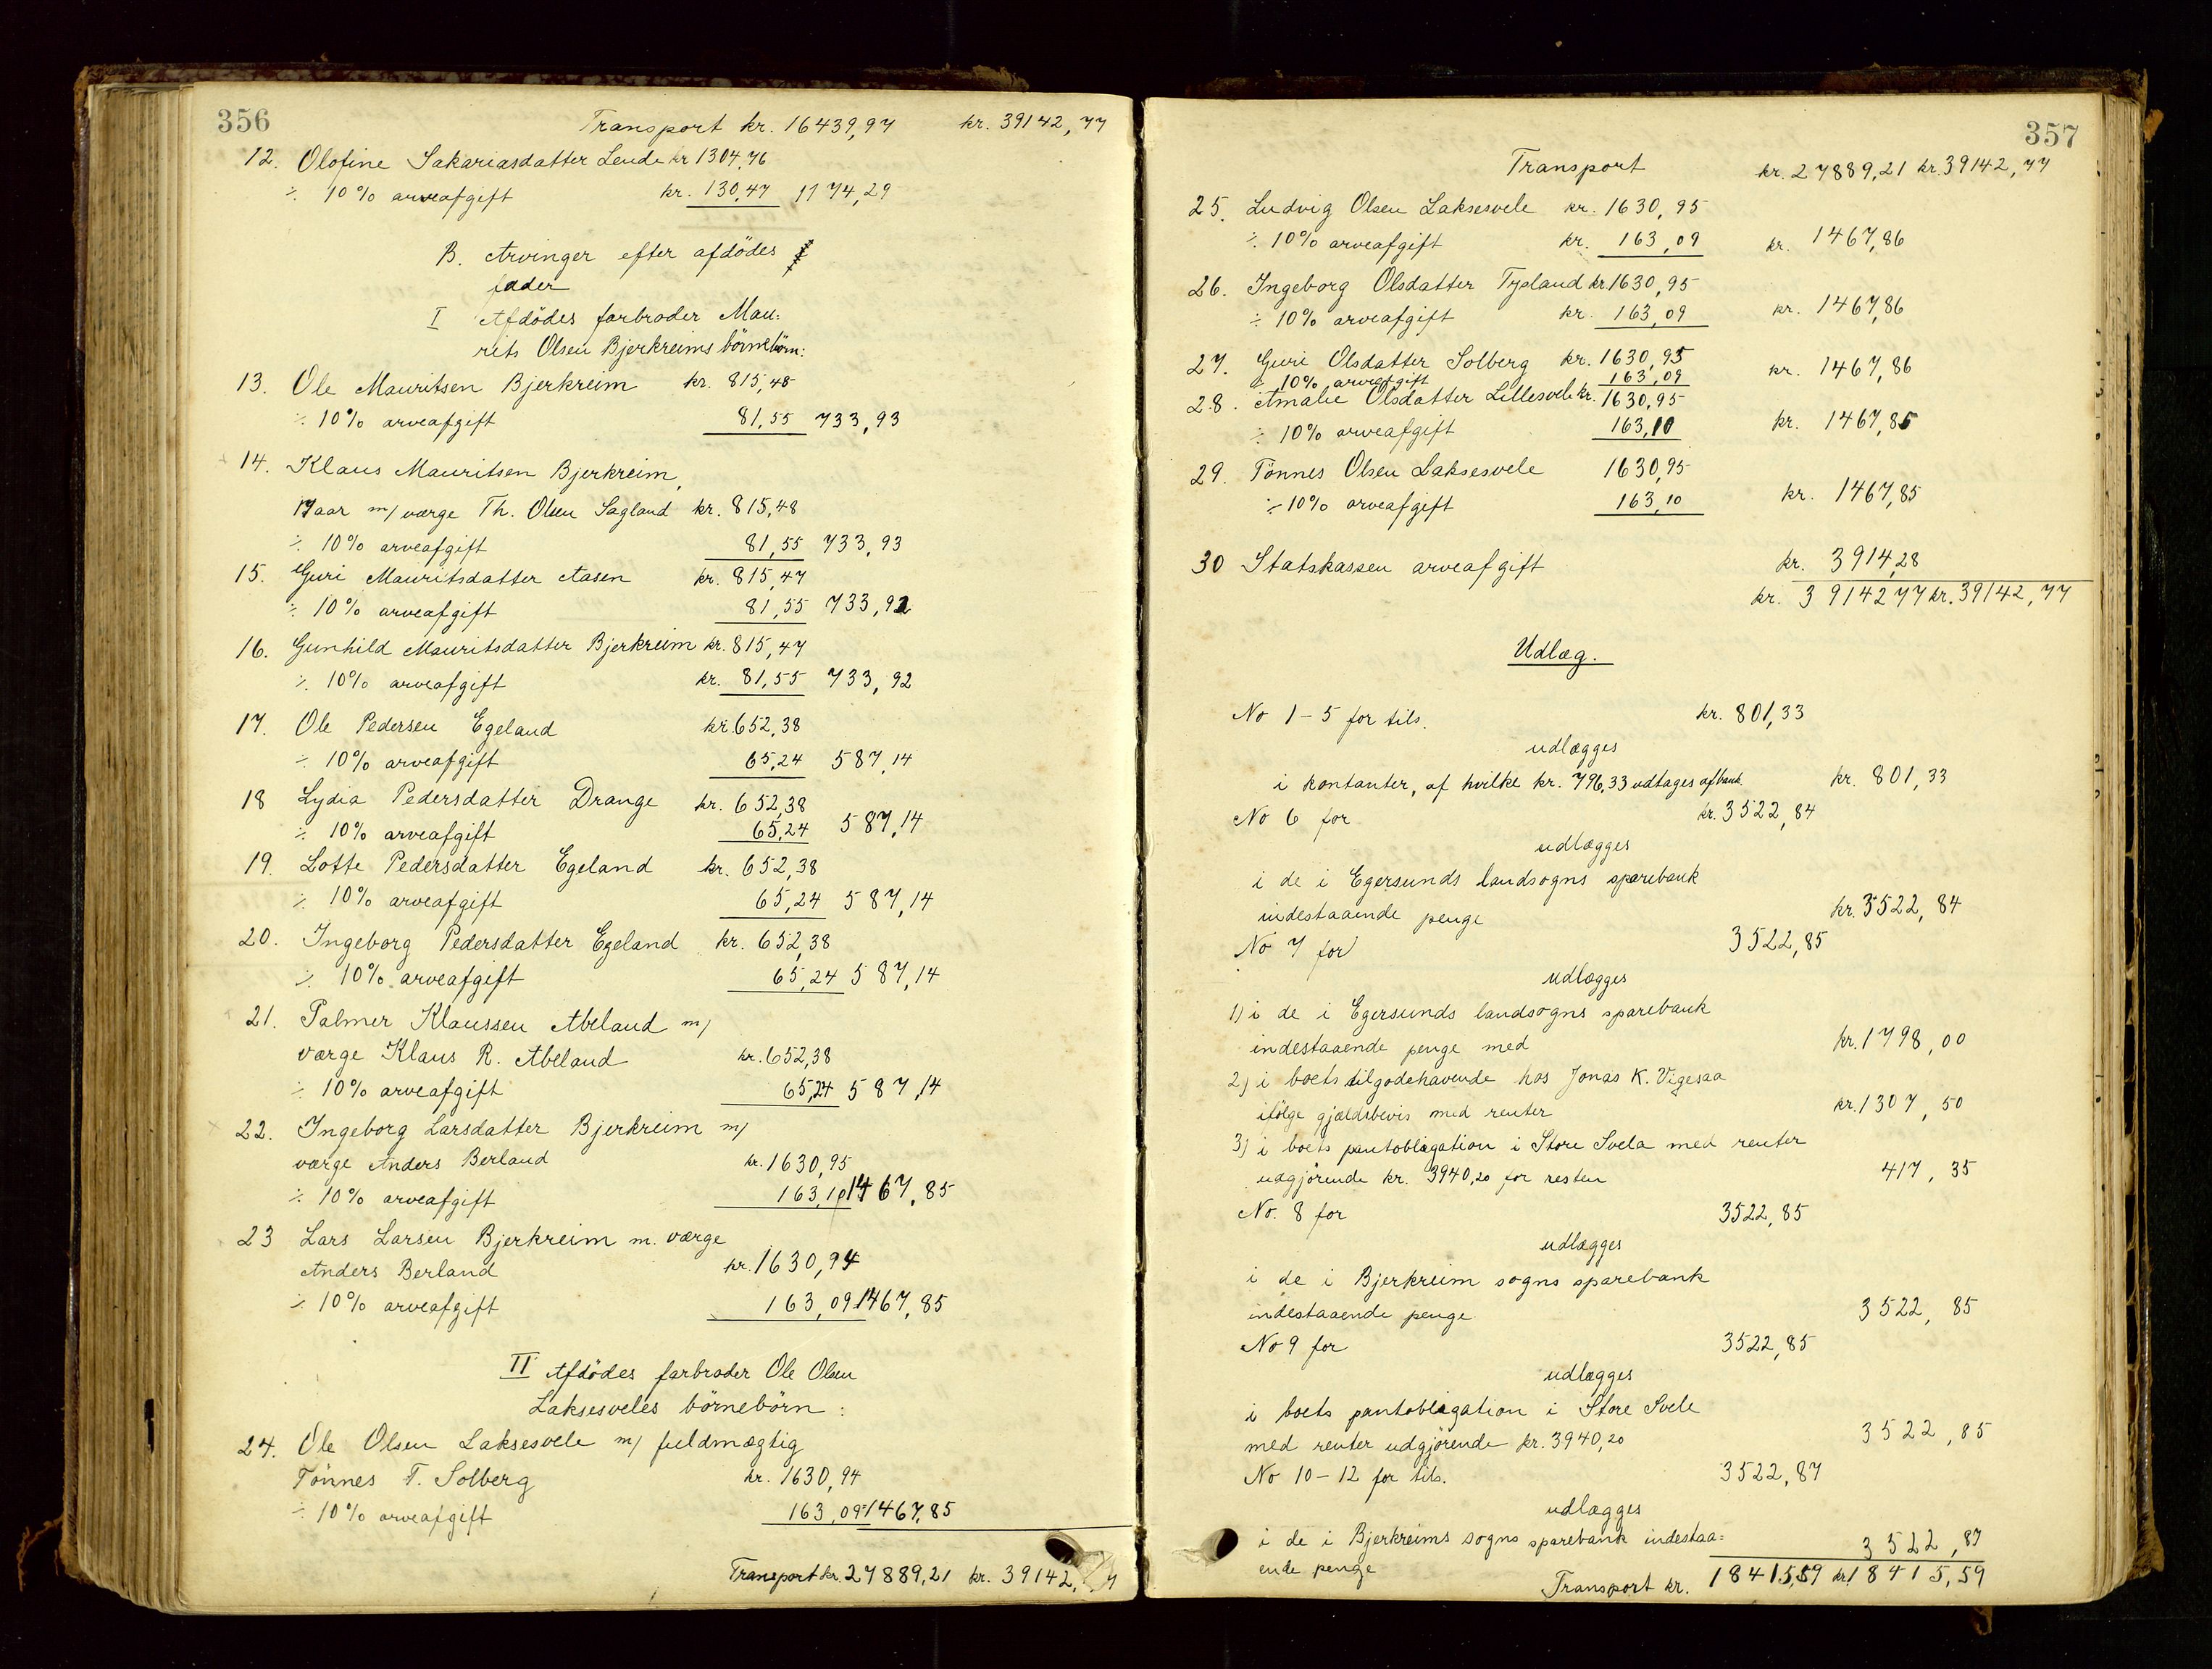 356
Transport kr. 16439,97 kr. 39142,77
12. Olofine Sakariasdatter Lende kr 1304,76
÷ 10% arveafgift kr. 130,47 1174,29
B. Arvinger efter afdödes
fader
I Afdödes farbroder Mau:
rits Olsen Bjerkreims börnebörn:
13. Ole Mauritsen Bjerkreim kr. 815,48
÷ 10% arveafgift 81,55 733,93
14. Klaus Mauritsen Bjerkreim,
17 aar m/ værge Th. Olsen Sagland kr. 815,48
÷ 10% arveafgift 81,55 733,93
15. Guri Mauritsdatter Aasen kr. 815,47
÷ 10% arveafgift 81,55 733,92
16. Gunhild Mauritsdatter Bjerkreim kr. 815,47
÷ 10% arveafgift kr. 81,55 733,92
17. Ole Pedersen Egeland kr. 652,38
÷ 10% arveafgift 65,24 587,14
18 Lydia Pedersdatter Drange kr. 652,38
÷ 10% arveafgift 65,24 587,14
19. Lotte Pedersdatter Egeland kr. 652,38
÷ 10% arveafgift 65,24 587,14
20. Ingeborg Pedersdatter Egeland kr. 652,38
÷ 10% arveafgift 65,24 587,14
21. Palmer Klaussen Abeland m/
værge Klaus R. Abeland kr. 652,38
÷ 10% arveafgift 65,24 587,14
22. Ingeborg Larsdatter Bjerkreim m/
værge Anders Berland kr. 1630,95
÷ 10% arveafgift 163,10 1467,85
23 Lars Larsen Bjerkreim m. værge
Anders Berland kr. 1630,94
÷ 10% arveafgift 163,09 1467,85
II Afdödes farbroder Ole Olsen
Laksesveles börnebörn :
24. Ole Olsen Laksesvele m/ fuldmægtig
Tönnes T. Solberg kr. 1630,94
÷ 10% arveafgift 163,09 1467,85
Transport kr. 27889,21 kr. 39142, 7
357
Transport kr. 27889,21 kr. 39142,77
25. Ludvig Olsen Laksesvele kr. 1630,95
÷ 10% arveafgift kr. 163,09 kr. 1467,86
26. Ingeborg Olsdatter Tysland kr 1630,95
÷ 10% arveafgift kr. 163,09 kr. 1467,86
27. Guri Olsdatter Solberg kr. 1630,95
÷ 10% arveafgift 163,09 kr. 1467,86
28. Amalie Olsdatter Lillesvele kr. 1630,95
÷ 10% arveafgift 163,10 kr. 1467,85
29. Tönnes Olsen Laksesvele 1630,95
÷ 10% arveafgift 163,10 kr. 1467,85
30 Statskassen arveafgift kr. 3914,28
kr. 39142 77 kr. 39142,77
Udlæg.
No 1-5 for tils. kr. 801,33
udlægges
i kontanter, af hvilke kr. 796,33 udtages af bank kr. 801,33
No 6 for kr. 3522,84
udlægges
i de i Egersunds landsogns sparebank
indestaaende penge kr. 3522,84
No 7 for 3522,85
udlægges
1) i de i Egersunds landsogns sparebank
indestaaende penge med kr. 1798,00
2) i boets tilgodehavende hos Jonas K. Vigesaa
ifölge gjældsbevis med renter kr. 1307,50
3) i boets pantobligation i Store Svela med renter
udgjörende kr. 3940,20 for resten 417,35
No. 8 for 3522,85
udlægges
i de i Bjerkreim sogns sparebank
indestaaende penge 3522,85
No 9 for 3522,85
udlægges
i boets pantobligation i Store Svele
med renter udgjörende kr. 3940,20 3522,85
No 10-12 for tils. 3522,87
udlægges
i de i Bjerkreims sogns sparebank indestaa=
ende penge 3522,87
Transport kr. 18415,59 kr. 18415,59